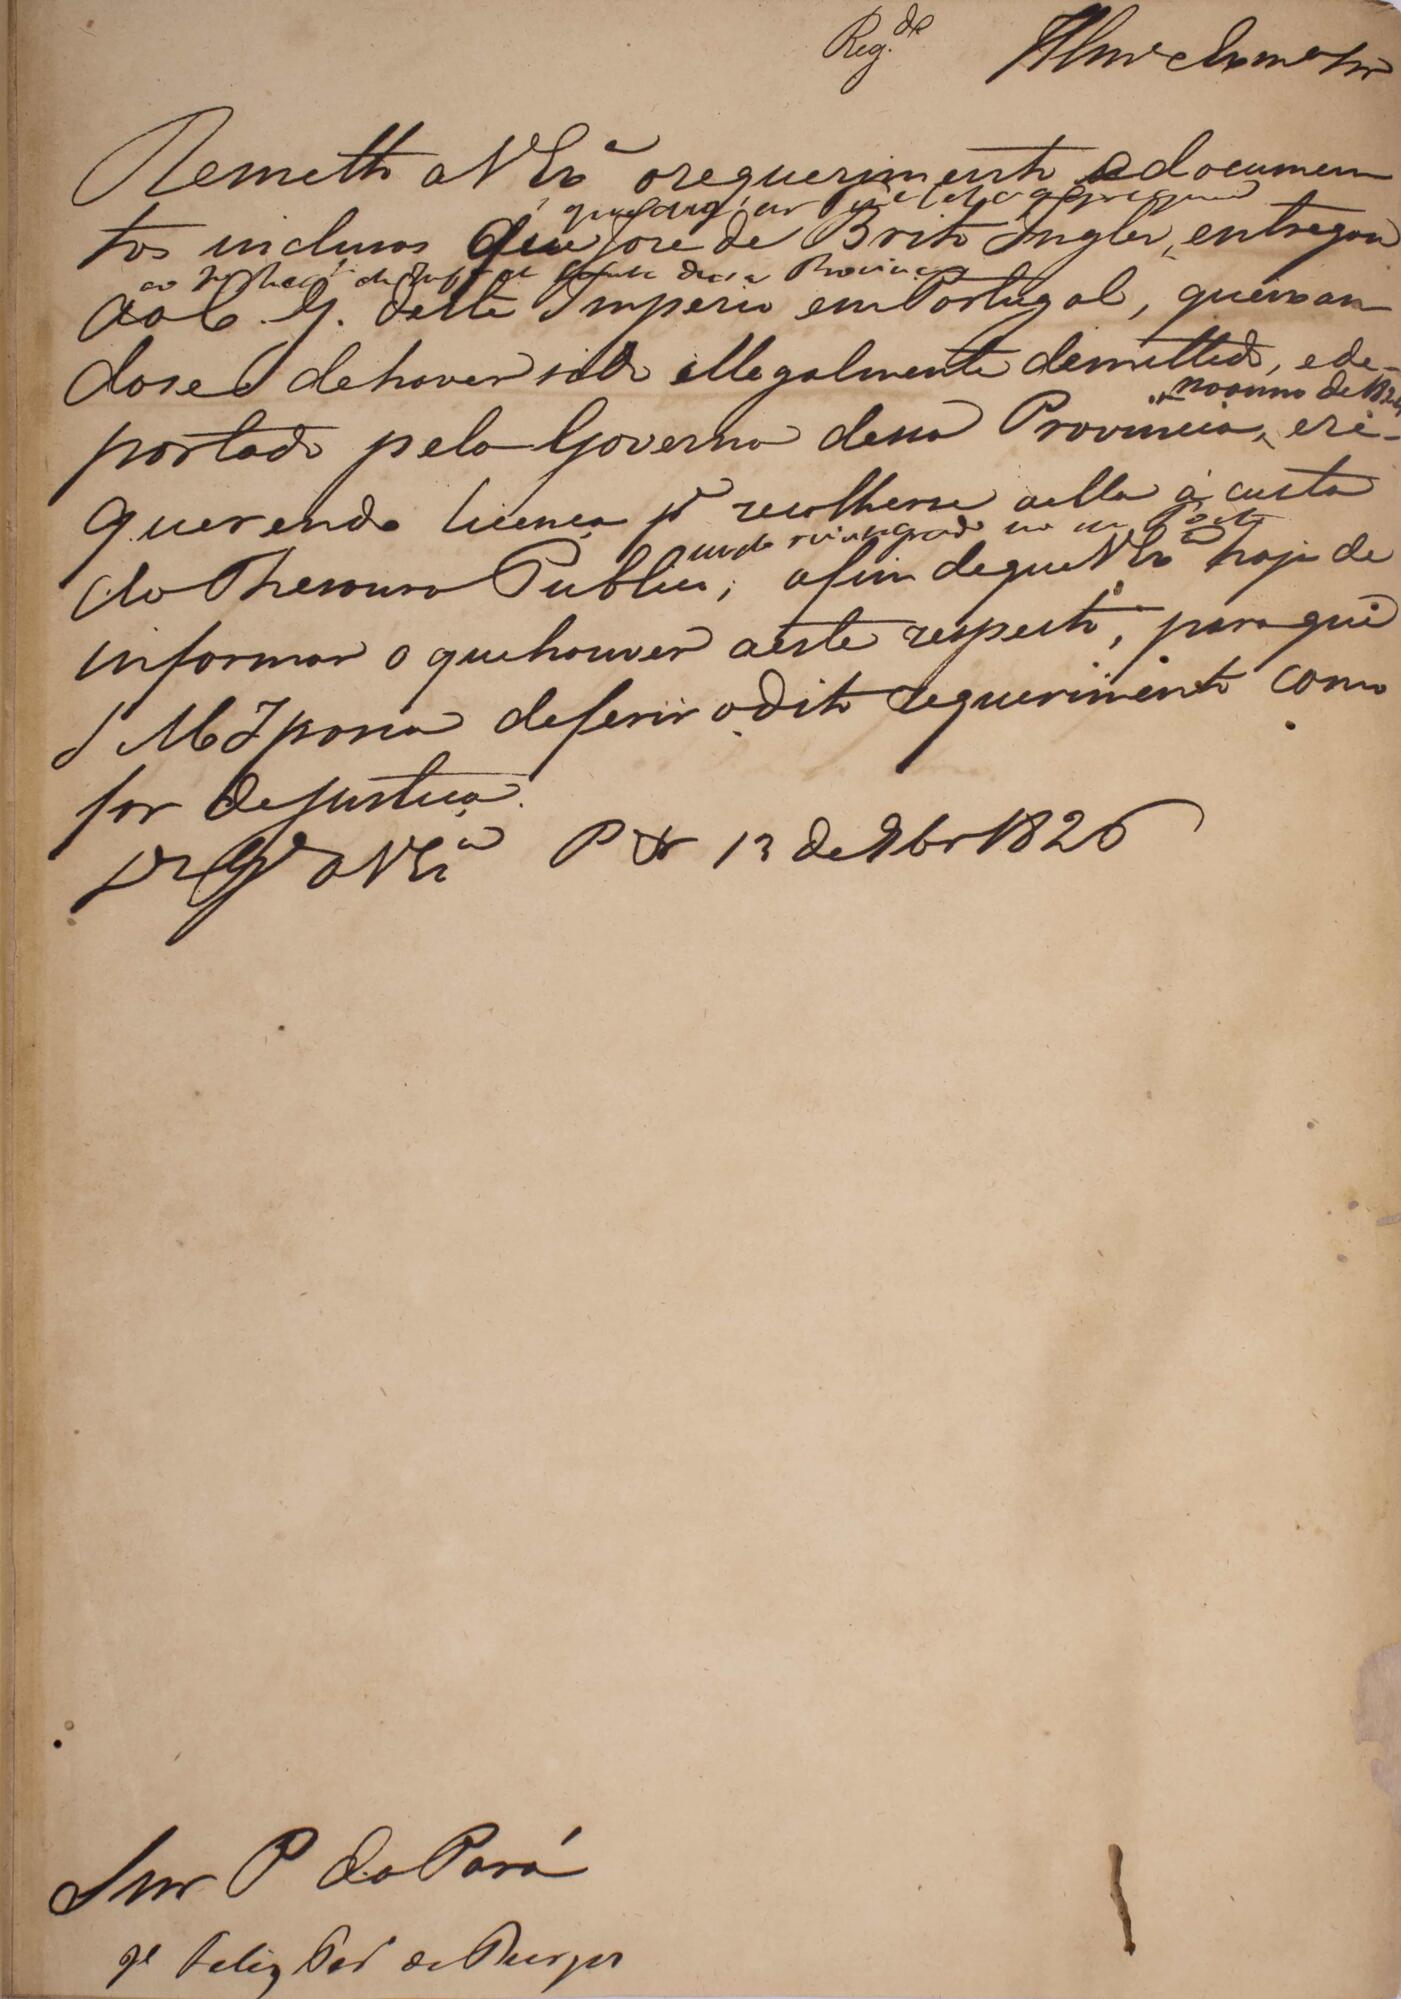 Reg.de
Illmo e Exmo Snr
Remetto a V Exa o requerimento e documen
tos inclusos que José de Brito Inglez, entregou
dessa Provincia
ao C. G. deste Imperio em Portugal, queixan
dose de haver sido illegalmente demittido, e de-
no anno de 1824
portado pelo Governo dessa Provincia, e re-
querendo licença pa recolherse a ella á custa
sendo reintegrado no seu Posto
do Thesouro Publico; afim de que V Exa haja de
informar o que houver a este respeito, para que
S M I possa deferir o dito requerimento como
for de justiça.
Ds Ge a V Exa P 13 de 9bro 1826
Snr P do Pará
Je Feliz Per de Burgos